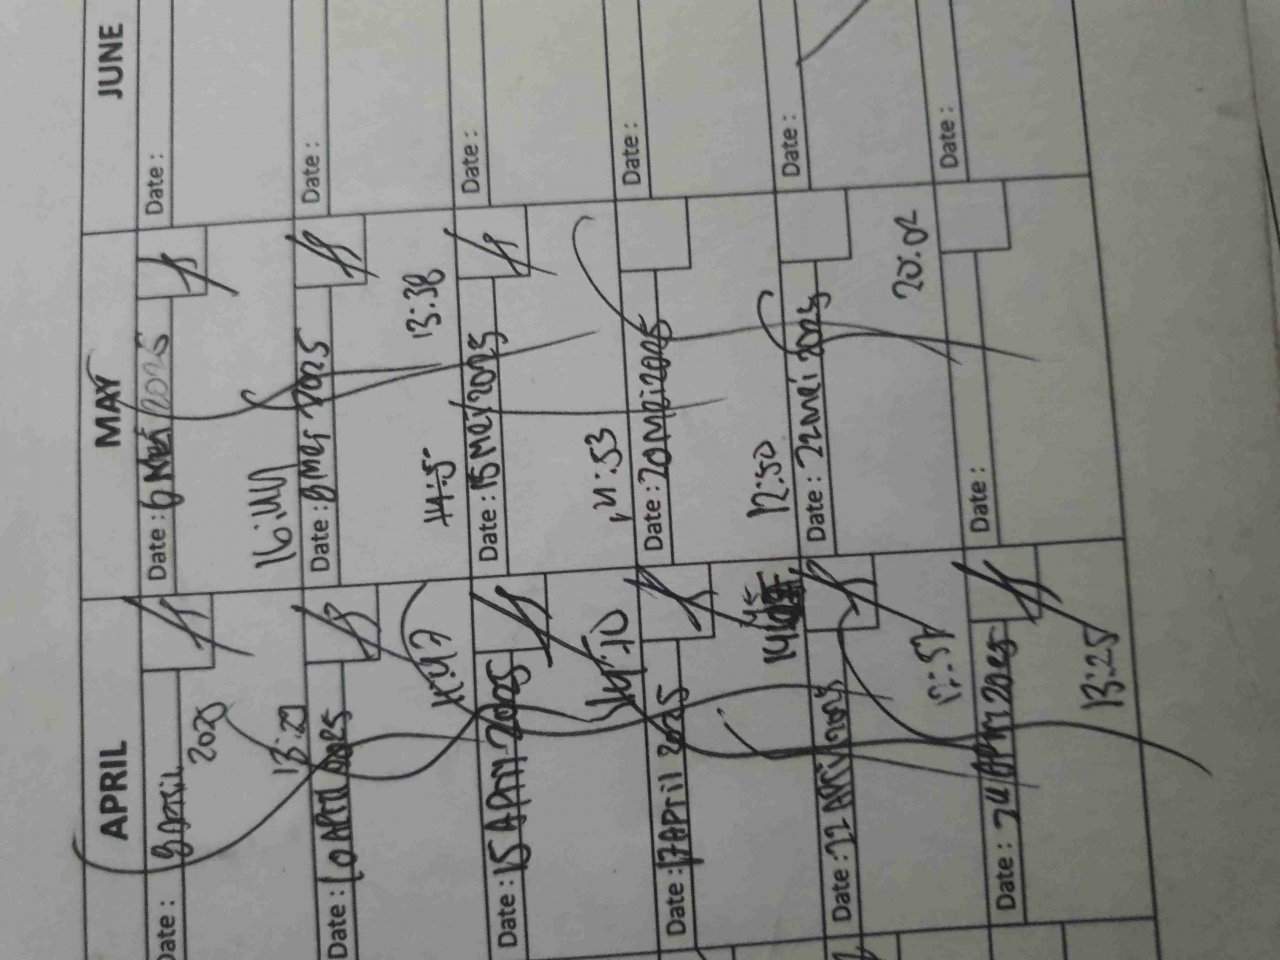 APRIL
Date: 8 April
2025
13:29
Date: 10 April 2025
Date: 15 April 2025
14:10
Date: 17 April 2025
Date: 22 April 2025
Date: 24 April 2025
13:25
MAY
Date: 6 Mei 2025
Date: 8 Mei 2025
13:38
Date: 15 Mei 2025
Date: 20 Mei 2025
12:50
Date: 22 Mei 2025
20.02
Date:
JUNE
Date:
Date:
Date:
Date:
Date:
Date: